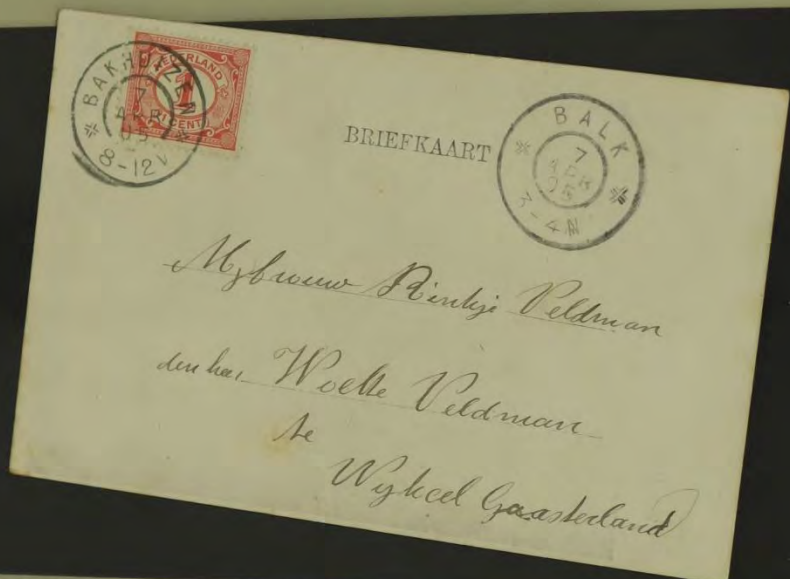 BAKHUIZEN
7
APR
05
8-12V
NEDERLAND
1
CENT
BRIEFKAART
BALK
7
APR
05
3-4N
Mejbrouw Rintje Veldman
den heer Woelte Veldman
te
Wykeel Gaasterland